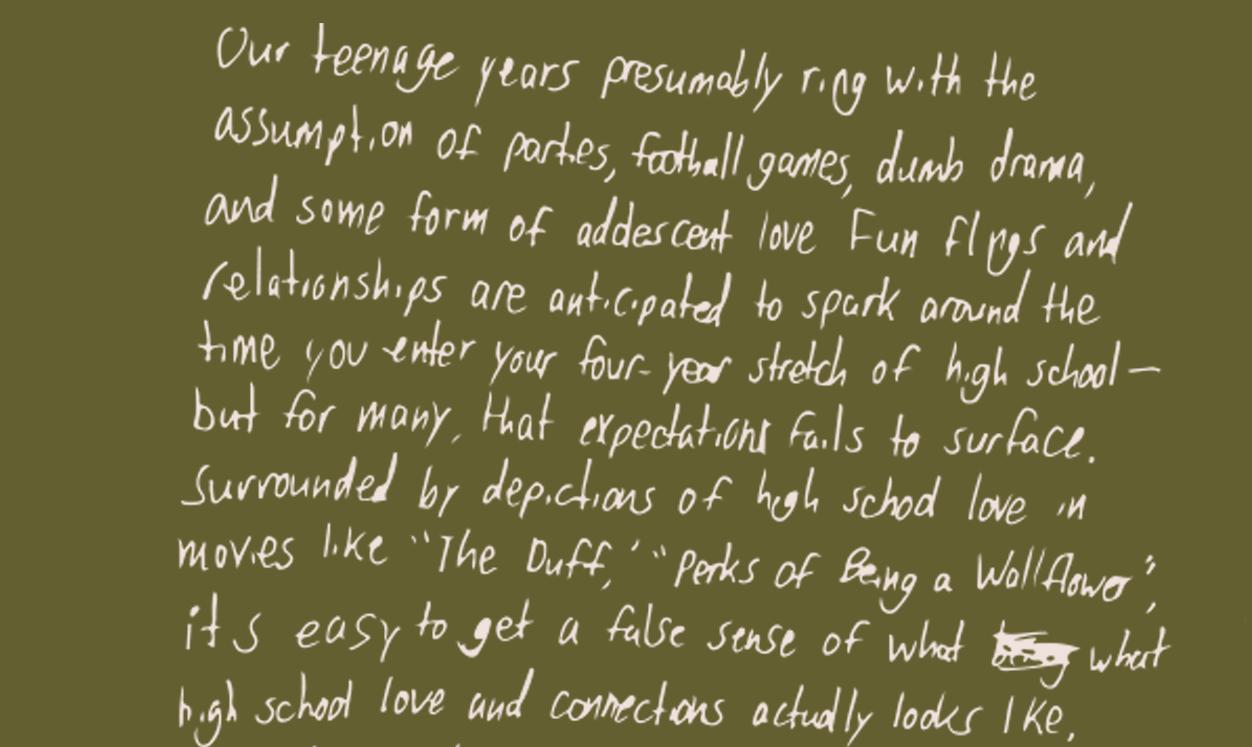 Our teenage years presumably ring with the
assumption of parties, football games, dumb drama,
and some form of addescent love Fun flings and
relationships are anticipated to spark around the
time you enter your four-year stretch of high school—
but for many, that expectations fails to surface.
Surrounded by depictions of high school love in
movies like "The Duff," "Perks of Being a Wallflower",
it s easy to get a false sense of what what
high school love and connections actually looks like,